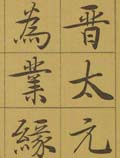 晉太元
為業緣